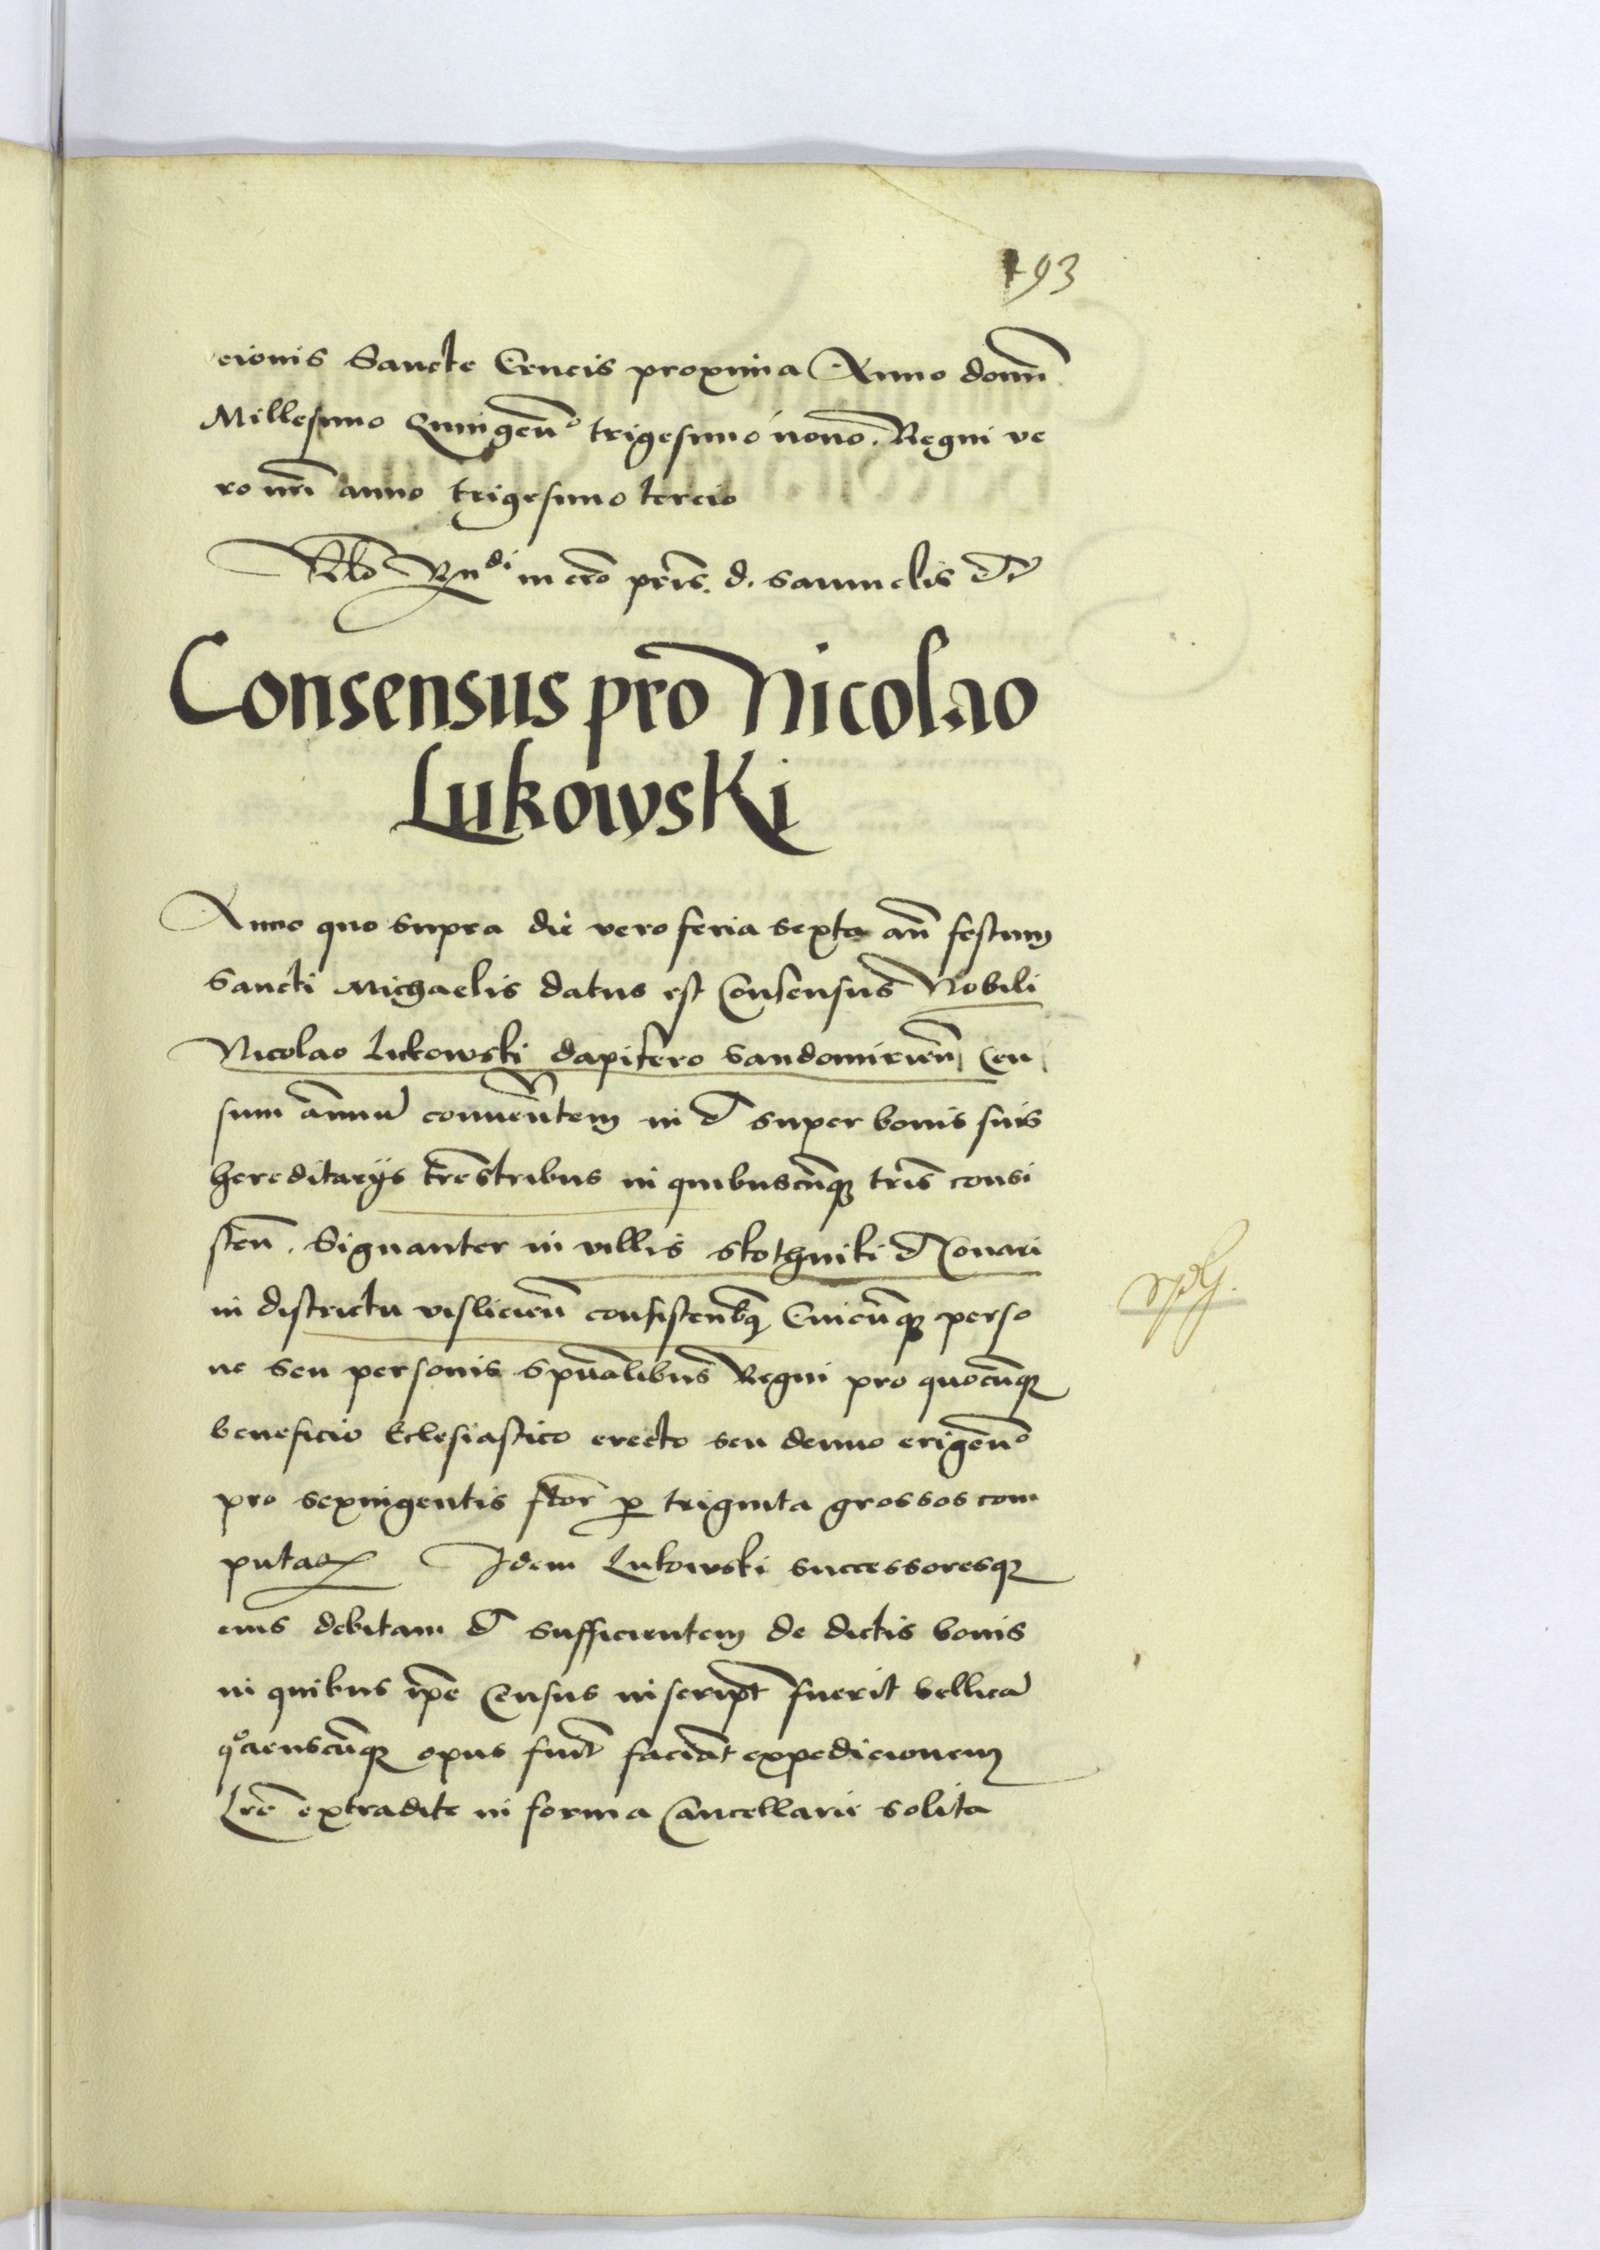 193
cionis Sancte Crucis proxima Anno domī
Millesimo Quingen̄o trigesimo nono. Regni ve
ro nr̄i anno trigesimo tercio
Rn̄di in cr̄o pr̄is. d. Samuelis
Consensus pro Nicolao
Lukowski
Anno quo supra die vero feria sexta an̄ festum
Sancti Michaelis datus est Consensus Nobili
Nicolao Lukowski dapifero Sandomirien̄ Cen
sum annuū convenientem in et super bonis suis
hereditarijs tr̄estribus in quibuscūque tr̄is consi
sten̄. Signanter in villis Skothniki et Conari
in districtu vislicien̄ consisten̄bus Cuicūque perso
ne seu personis Spūalibus Regni pro quocūque
beneficio Eclesiastico erecto seu denuo erigen̄o
pro sexingentis flor̄ per triginta grossos com
putan̄ Idem Lukowski successoresque
eius debitam et sufficientem de dictis bonis
in quibus ip̄e Census inscript fuerit bellicā
quociensciūque opus fuīt faciāt expedicionem
Lr̄e extradite in forma Cancellarie solita